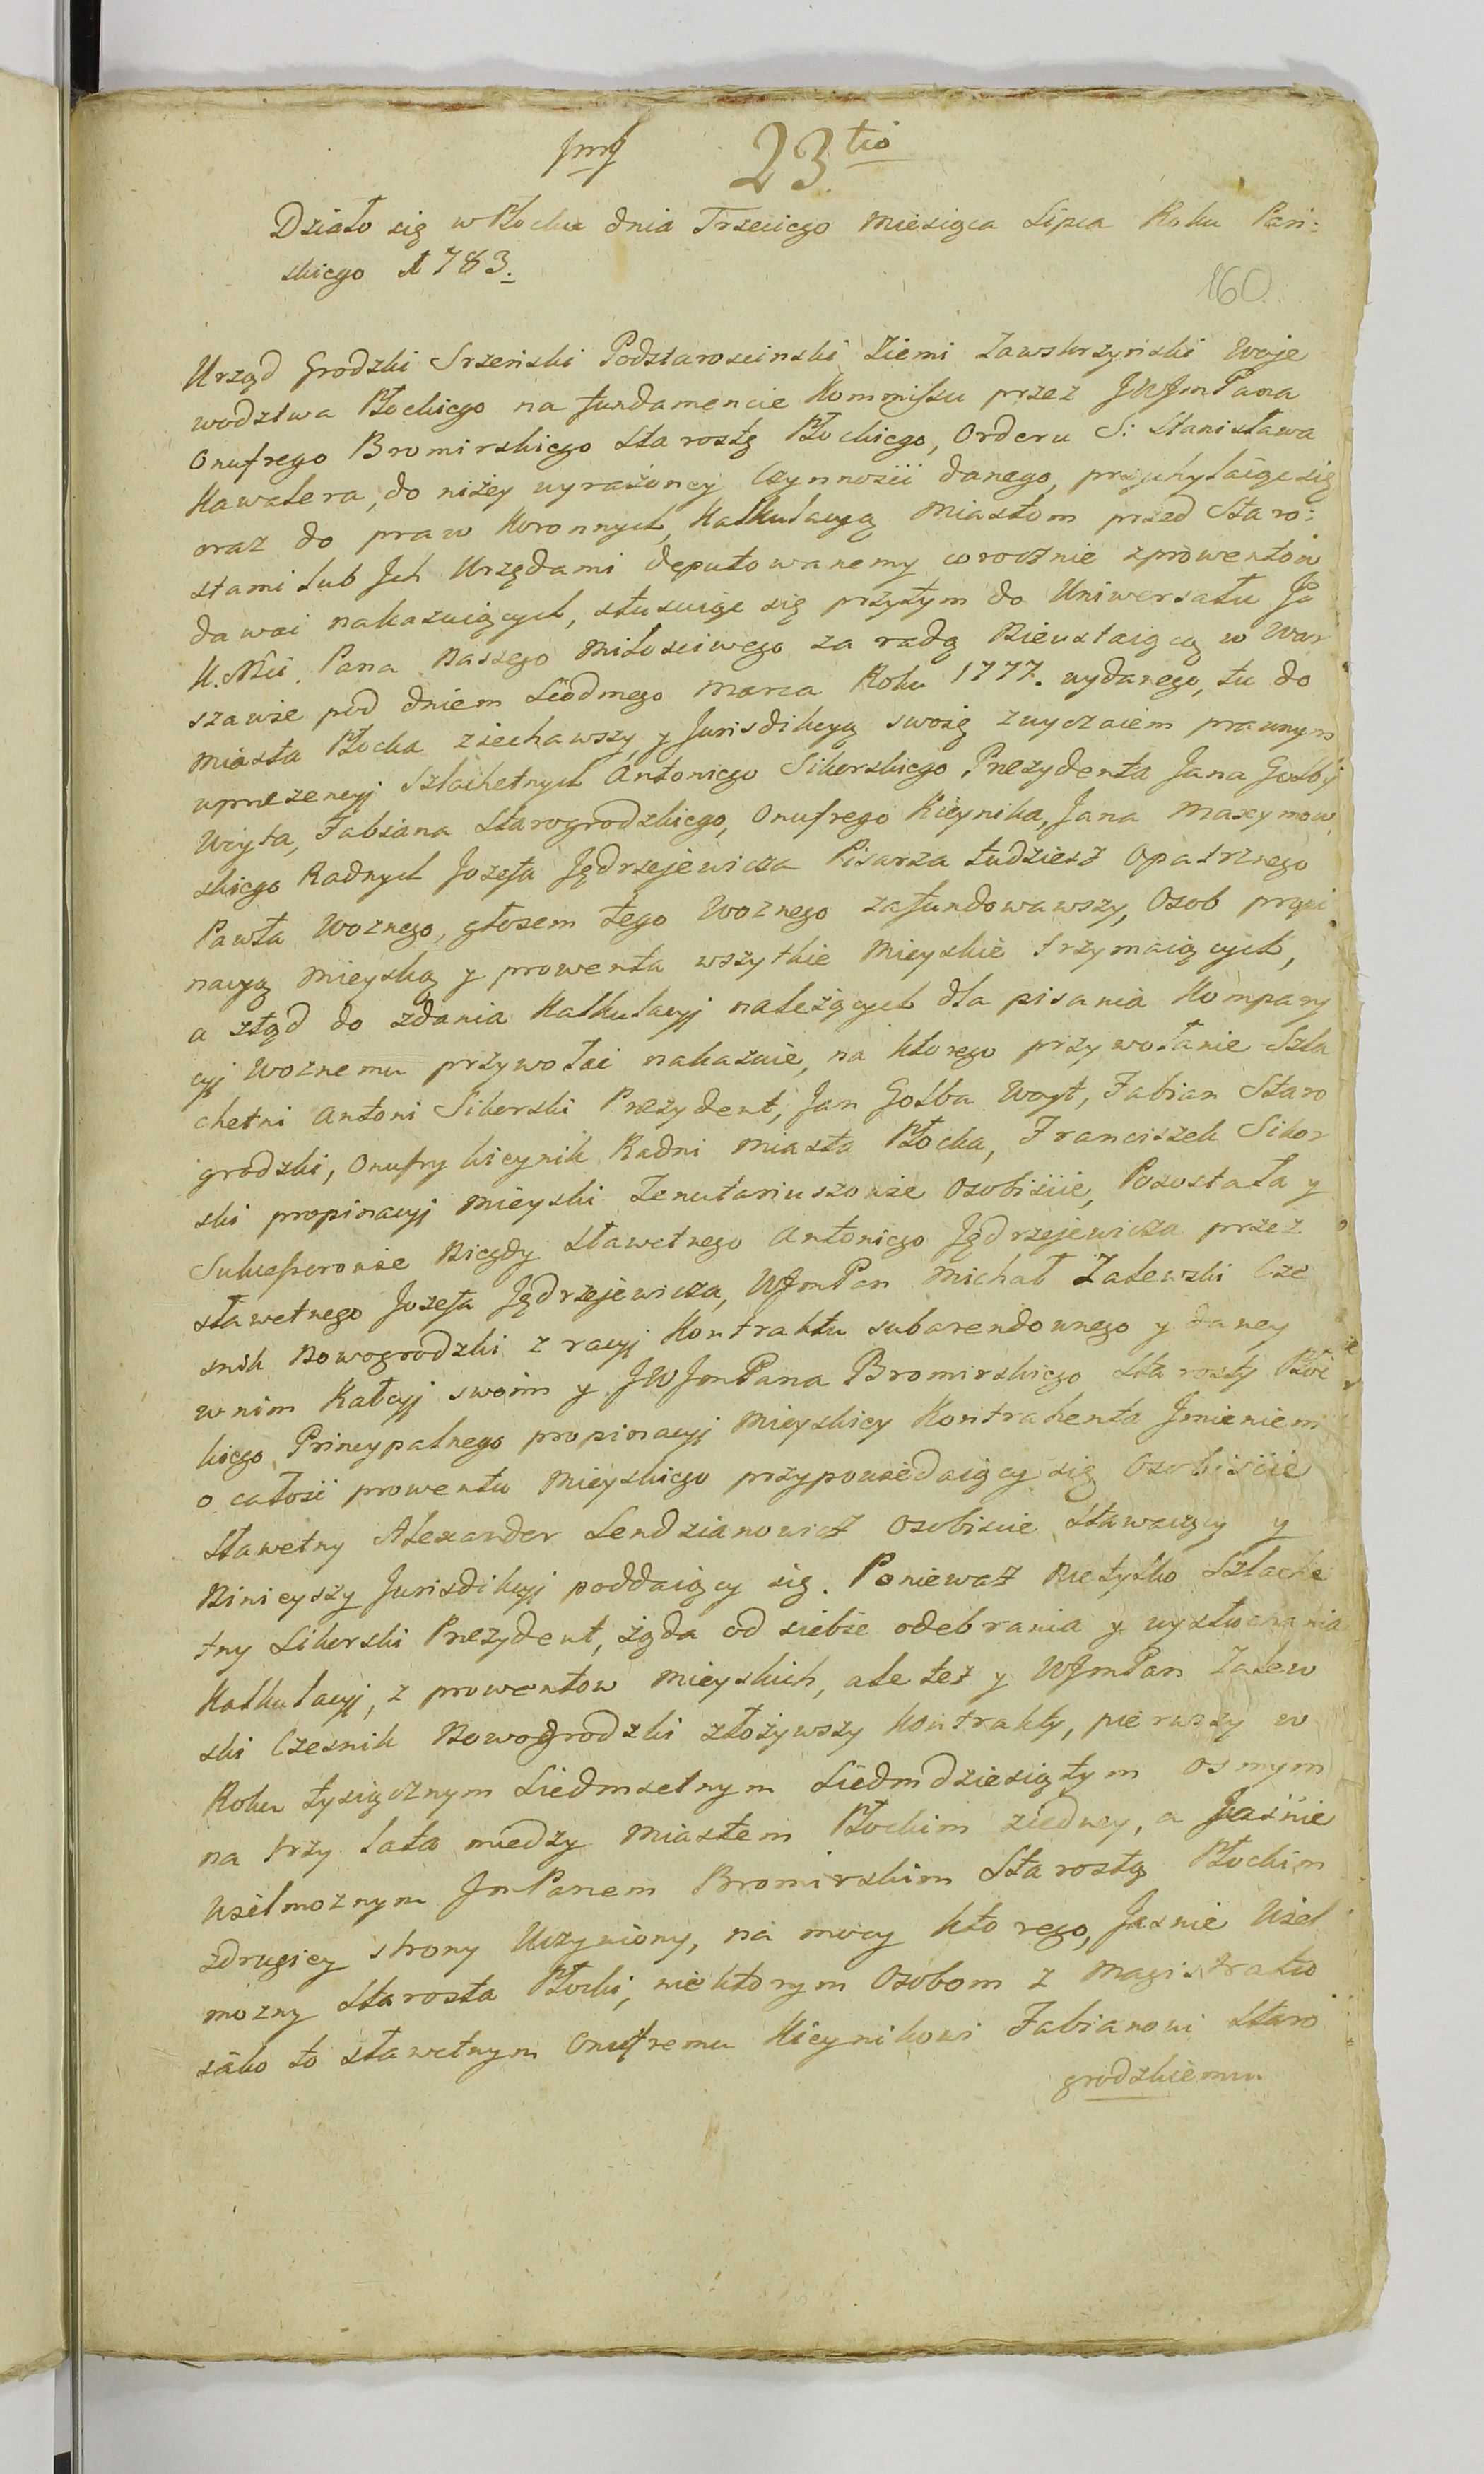 23 tio
Działo się w Płocku dnia Trzeciego Miesiąca Lipca Roku Pań:
skiego 1783.
160
Urząd Grodzki Srzeński Podstarosciński Ziemi Zawskrzyński Woje
wodztwa Płockiego na fundamencie Kommissu przez JWJmPana
Onufrego Bromirskiego Starostę Płockiego, Orderu S: Stanisława
Kawalera, do niżey wyrażoney Czynności danego, przychylaiąc się
oraz do praw Koronnych, Kalkulacyą Miastom przed Staro:
stami lub Jch Urzędami deputowanemy corocznie zprowentow
dawać nakazuiących, stosuiąc się przytym do Uniwersału J
K. Mći Pana Naszego Miłosciwego za radą Nieustaiącą w War
szawie pod dniem Siodmego Marca Roku 1777. wydanego, tu do
Miasta Płocka ziechawszy, y Jurisdikcyą swoię zwyczaiem prawnym
wprezencyj Szlachetnych Antoniego Sikorskiego Prezydenta Jana Gołby
Woyta, Fabiana Starogrodzkiego, Onufrego Kicynika, Jana Maxymow
skiego Radnych Jozefa Jędrzejewicza Pisarza tudziesz Opatrznego
Pawła Woznego, głosem tego Woznego zafundowawszy, Osob propi
nacyą Mieyską y prowenta wszytkie Mieyskie trzymaiących,
a ztąd do zdania Kalkulacyj należących dla pisania Kompary
cyj Woznemu przywołać nakazuie, na ktorego przywołanie Szla
chetni Antoni Sikorski Prezydent, Jan Gołba Woyt, Fabian Staro
grodzki, Onufry Kicynik Radni Miasta Płocka, Franciszek Sikor
ski propinacyj Mieyski Tenutariuszowie Osobiście, Pozostała y
Sukcessorowie Niegdy Sławetnego Antoniego Jędrzejewicza przez
sławetnego Jozefa Jędrzejewicza, WJmPan Michał Zalewski Cze
snik Nowogrodzki z racyj Kontraktu subarendownego y daney
wnim Kałcyj swoim y JWJmPana Bromirskiego Starosty Płoc
kiego Princypalnego propinacyj Mieyskiey Kontrahenta Jmieniem
o całość prowentu Mieyskiego przypowiedaiący się Osobiście
Sławetny Alexander Lendzianowicz Osobiscie stawaiący y
Ninieyszy Jurisdikcyj poddaiący się. Ponieważ Nietylko Szlache
tny Sikorski Prezydent, żąda od siebie odebrania y wysłuchania
Kalkulacyj, z prowentow Mieyskich, ale też y WJmPan Zalew
ski Czesnik Nowogrodzki złożywszy Kontrakty, pierwszy w
Roku tysiącznym Siedmsetnym Siedmdziesiątym osmym
na trzy lata miedzy Miastem Płockim ziedney, a Jaśnie
Wielmożnym JmPanem Bromirskim Starostą Płockim
zdrugiey strony Uczyniony, na mocy ktorego, Jasnie Wiel
możny Starosta Płocki, niektorym Osobom z Magistratu
iako to sławetnym Onufremu Kicynikowi Fabianowi Staro
grodzkiemu